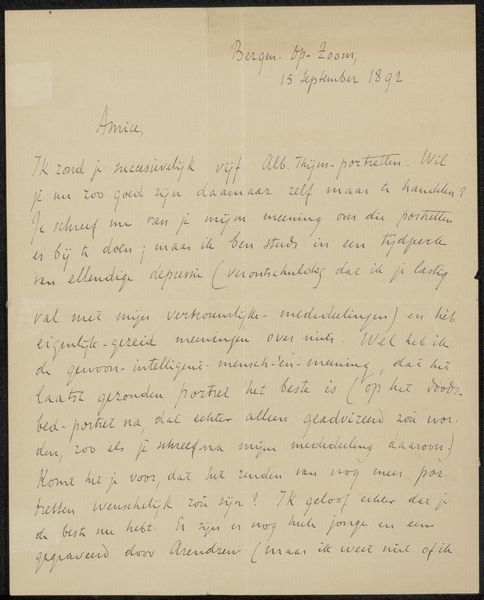 Bergen-Op-Zoom,
15 September 1892
Amice,
Ik zond je successievelijk vijf Alb. Thijm-portretten. Wil
je nu zoo goed zijn daarnaar zelf maar te handelen?
Je schreef me van je mijn meening over die portretten
er bij te doen; maar ik ben steeds in een tijdperk
van ellendige depressie (verontschuldig dat ik je lastig
val met mijn vertrouwelijke-mededeelingen) en heb
eigenlijk-gezeid meeningen over niets. Wel heb ik
de gewoon-intelligent-mensch-en-meening, dat het
laatst gezonden portret het beste is (op het doods-
bed-portret na, dat echter alleen geadvizeerd zou wor-
den, zoo als je schreef na mijn mededeeling daarover)
Komt het je voor, dat het zenden van nog meer por-
tretten wenschelijk zou zijn? Ik geloof echter dat je
de beste nu hebt. Er zijn er nog heele jonge en een
gegraveerd door Arendzen (maar ik weet niet of ik